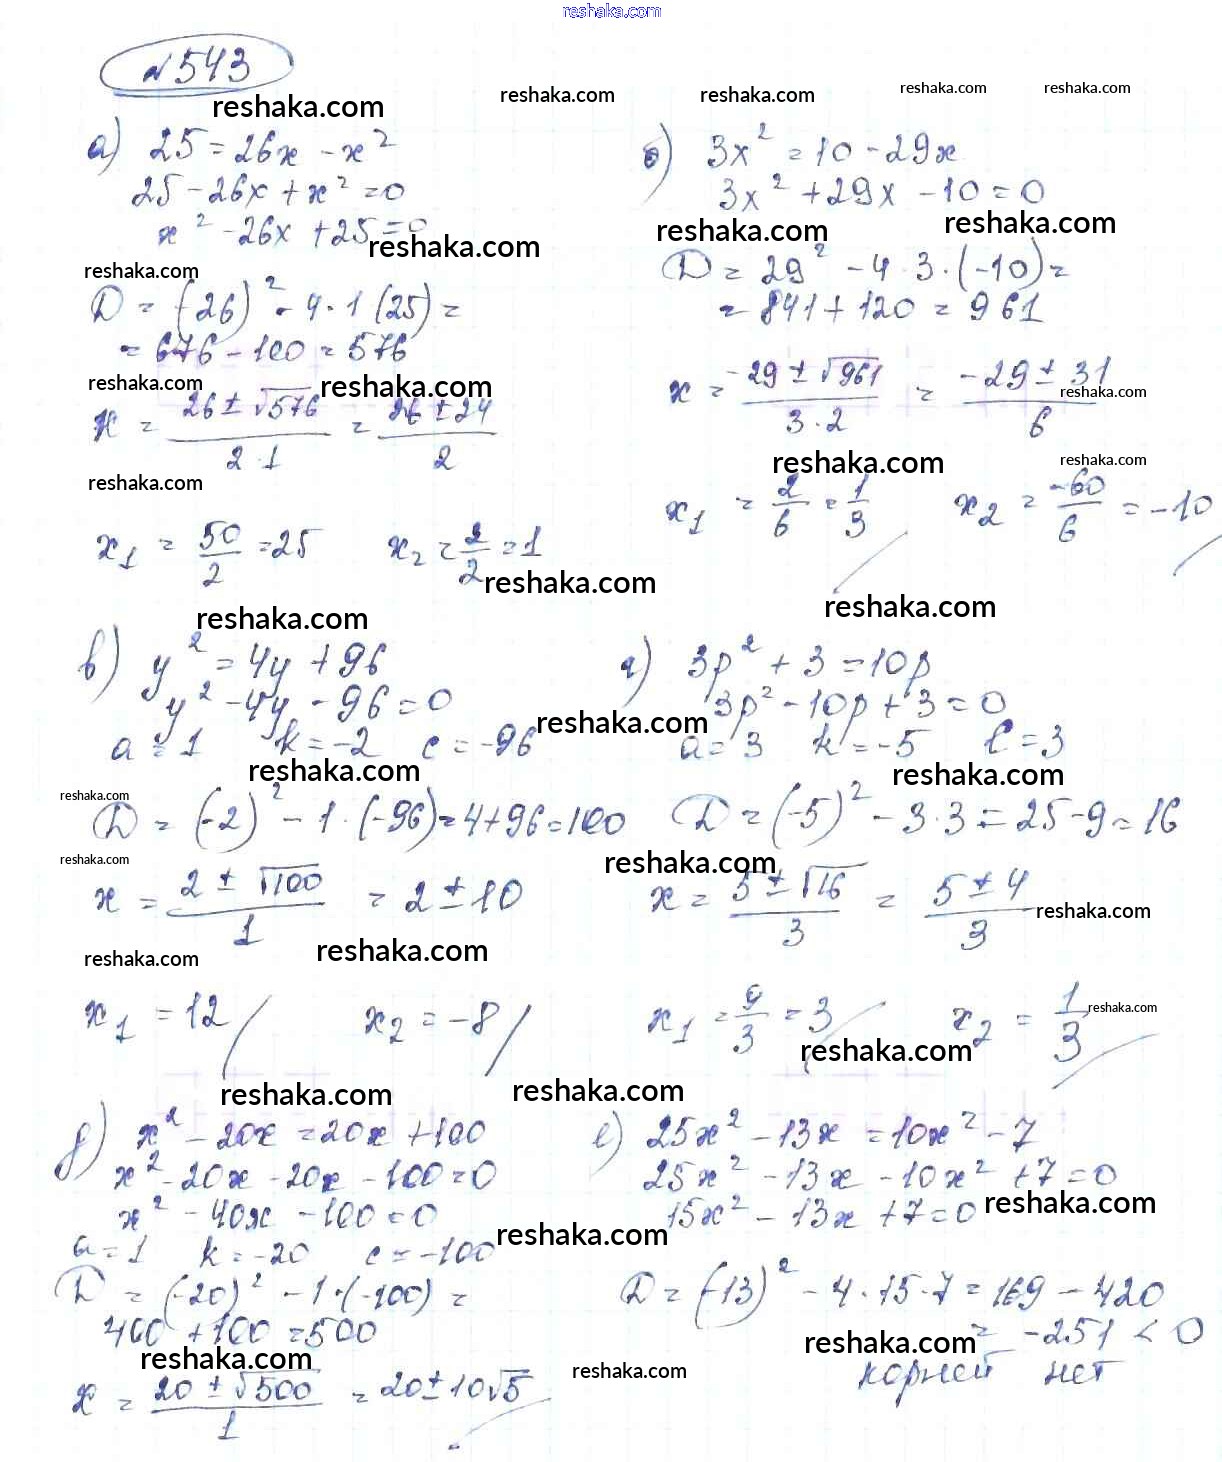 reshaka.com
№543
reshaka.com reshaka.com reshaka.com reshaka.com reshaka.com
а) 25 = 26x - x²
25 - 26x + x² = 0
x² - 26x + 25 = 0
reshaka.com
reshaka.com
D = (-26)² - 4·1 (25) =
= 676 - 100 = 576
reshaka.com reshaka.com
x = (26 ± √576)/(2·1) = (26 ± 24)/2
reshaka.com
x₁ = 50/2 = 25 x₂ = 2/2 = 1
reshaka.com
б) 3x² = 10 - 29x
3x² + 29x - 10 = 0
reshaka.com reshaka.com
D = 29² - 4·3·(-10) =
= 841 + 120 = 961
x = (-29 ± √961)/(3·2) = (-29 ± 31)/6
reshaka.com
reshaka.com reshaka.com
x₁ = 2/6 = 1/3 x₂ = -60/6 = -10
reshaka.com
reshaka.com
в) y² = 4y + 96
y² - 4y - 96 = 0
reshaka.com
a = 1 k = -2 c = -96
reshaka.com
reshaka.com
D = (-2)² - 1·(-96) = 4 + 96 = 100
reshaka.com
x = (2 ± √100)/1 = 2 ± 10
reshaka.com reshaka.com
x₁ = 12 x₂ = -8
reshaka.com reshaka.com
г) 3p² + 3 = 10p
3p² - 10p + 3 = 0
a = 3 k = -5 c = 3
reshaka.com
D = (-5)² - 3·3 = 25 - 9 = 16
reshaka.com
x = (5 ± √16)/3 = (5 ± 4)/3
reshaka.com
x₁ = 9/3 = 3 x₂ = 1/3
reshaka.com
reshaka.com
д) x² - 20x = 20x + 100
x² - 20x - 20x - 100 = 0
x² - 40x - 100 = 0
a = 1 k = -20 c = -100
reshaka.com
D = (-20)² - 1·(-100) =
400 + 100 = 500
reshaka.com
x = (20 ± √500)/1 = 20 ± 10√5
reshaka.com
е) 25x² - 13x = 10x² - 7
25x² - 13x - 10x² + 7 = 0
15x² - 13x + 7 = 0
reshaka.com
D = (-13)² - 4·15·7 = 169 - 420
= -251 < 0
reshaka.com
корней нет